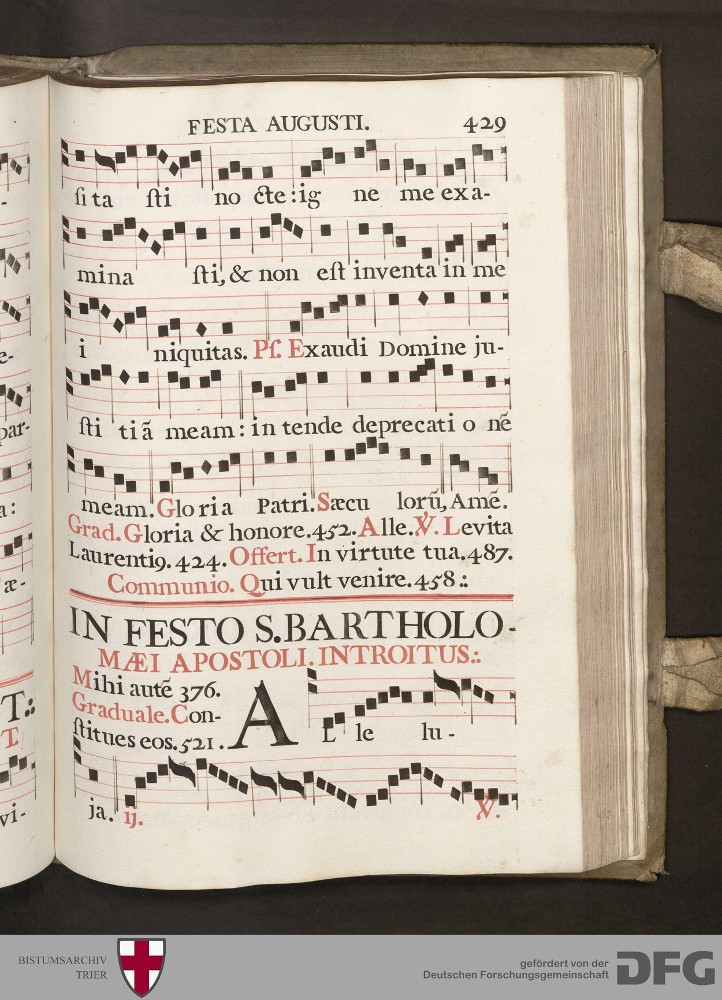 FESTA AUGUSTI. 429
ſi ta ſti no cte : ig ne me exa-
mina ſti, & non eſt inventa in me
i niquitas. Pſ. Exaudi Domine ju-
ſti tiã meam : in tende deprecati o nẽ
meam. Glo ri a Patri. Sæcu lorũ, Amẽ.
Grad. Gloria & honore. 452. Alle. V̓. Levita
Laurenti9. 424. Offert. In virtute tua. 487.
Communio. Qui vult venire. 458 :.
IN FESTO S. BARTHOLO-
MÆI APOSTOLI. INTROITUS :.
Mihi autẽ 376.
Graduale. Con-
ſtitues eos. 521.
AL le lu-
ja. ij. V̓.
-
e-
par-
a :
æ-
T :.
T.
vi-
BISTUMSARCHIV
TRIER
gefördert von der
Deutschen Forschungsgemeinschaft
DFG